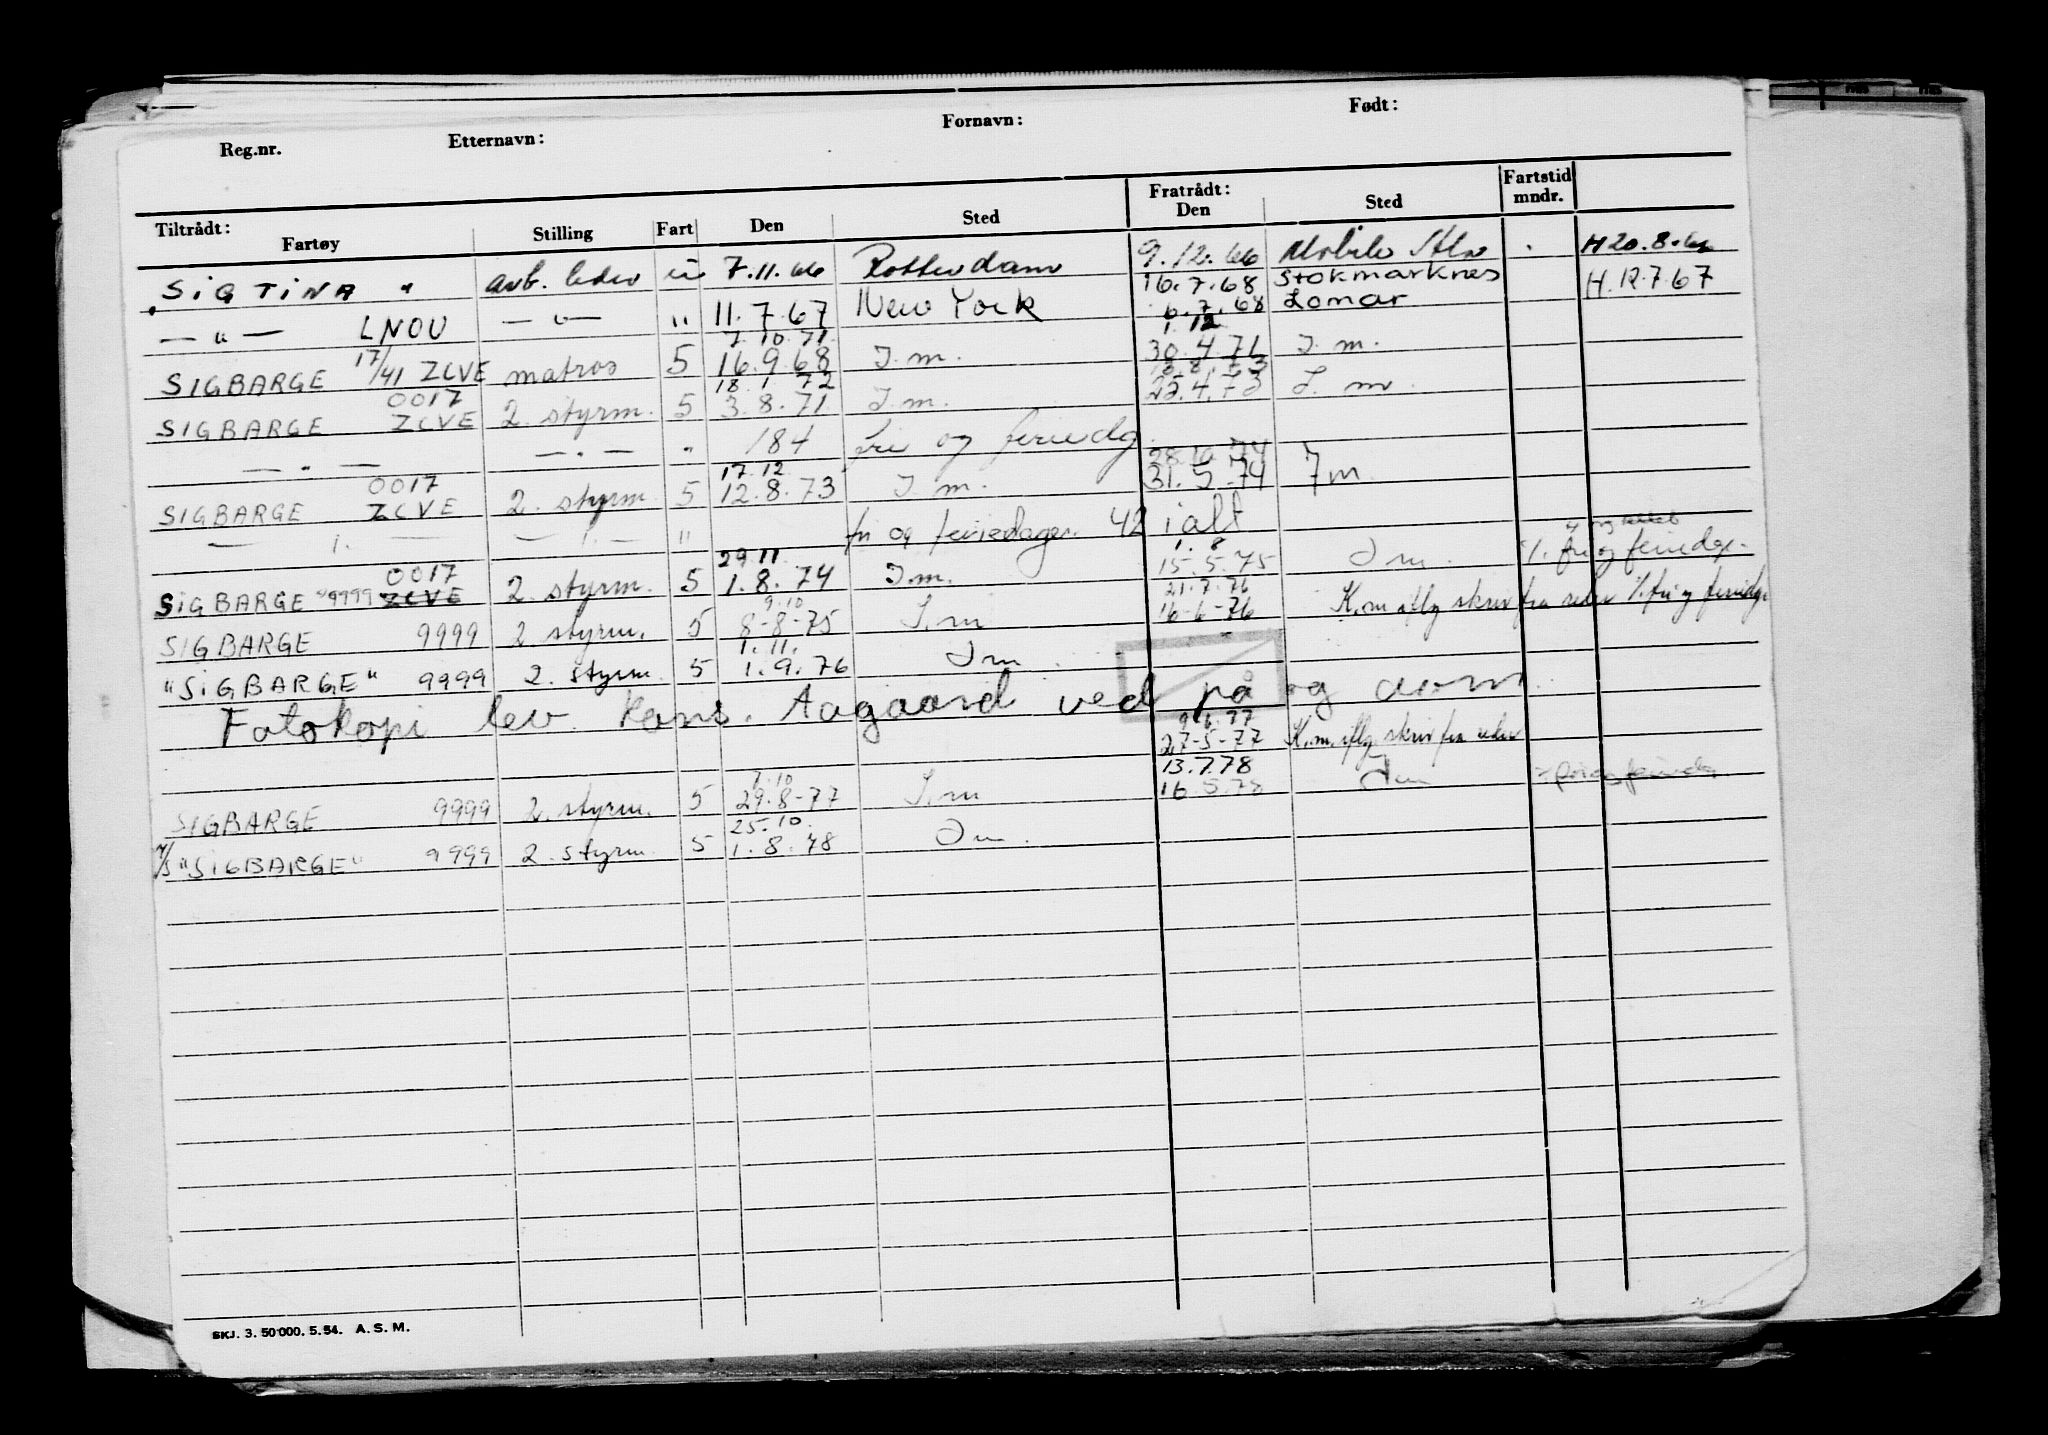 Reg.nr. Etternavn: Fornavn: Født:
Tiltrådt: Fratrådt: Fartstid
Fartøy Stilling Fart Den Sted Den Sted mndr.
"SIGTINA" 7.11.66 Rotterdam 9.12.66 Mobile H 20.8.
16.7.68 Stokmarknes
— " — LNOU — " — " 11.7.67 New York 6.7.68 Lomar H.12.7.67
7.10.71 1.12
SIGBARGE 17/41 ZCVE matros 5 16.9.68 I.m. 30.4.71 I.m.
0017 18.1.72 18.8.73
SIGBARGE ZCVE 2. styrm. 5 3.8.71 I.m. 25.4.73 I.m.
— " — — " — " 184 fri og feriedg.
0017 17.12 74
SIGBARGE ZCVE 2. styrm. 5 12.8.73 I.m. 31.5.74 I m
— " — — " — " fri og feriedager. 42 ialt
0017 29.11 1.8
SIGBARGE "9999 ZCVE 2. styrm. 5 1.8.74 I.m. 15.5.75 I m. %. fri og feriedgr.
9.10 21.7.76
SIGBARGE 9999 2. styrm. 5 8-8-75 I.m 16-6-76 K.m iflg skriv fra reder %. fri og feriedg.
1.11.
"SIGBARGE" 9999 2. styrm. 5 1.9.76 I m.
Fotokopi lev. Hans. Aagaard ved på og avm.
9.6.77
27-5-77 K.m. iflg. skriv fra reder
7.10 13.7.78
SIGBARGE 9999 2. styrm. 5 29.8-77 I.m 16.5.78 I m
25.10.
"SIGBARGE" 9999 2. styrm. 5 1.8.78 I m.
SKJ. 3. 50 000. 5. 54. A. S. M.